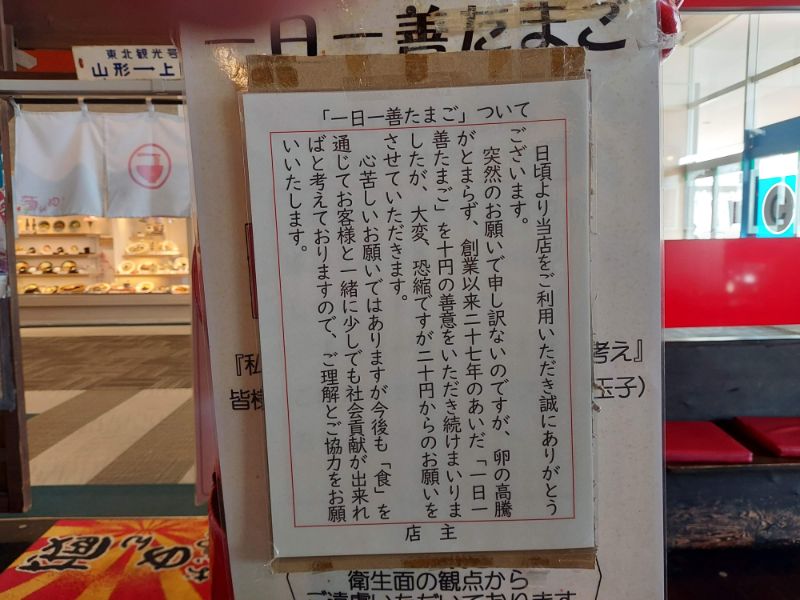 一日一善たまご
東北観光号
山形ー上
「一日一善たまご」ついて
日頃より当店をご利用いただき誠にありがとう
ございます。
突然のお願いで申し訳ないのですが、卵の高騰
がとまらず、創業以来二十七年のあいだ「一日一
善たまご」を十円の善意をいただき続けまいりま
したが、大変、恐縮ですが二十円からのお願いを
させていただきます。
心苦しいお願いではありますが今後も「食」を
通じてお客様と一緒に少しでも社会貢献が出来れ
ばと考えておりますので、ご理解とご協力をお願
いいたします。
店　主
『私
考え』
皆様
玉子）
衛生面の観点から
ご遠慮いただいております